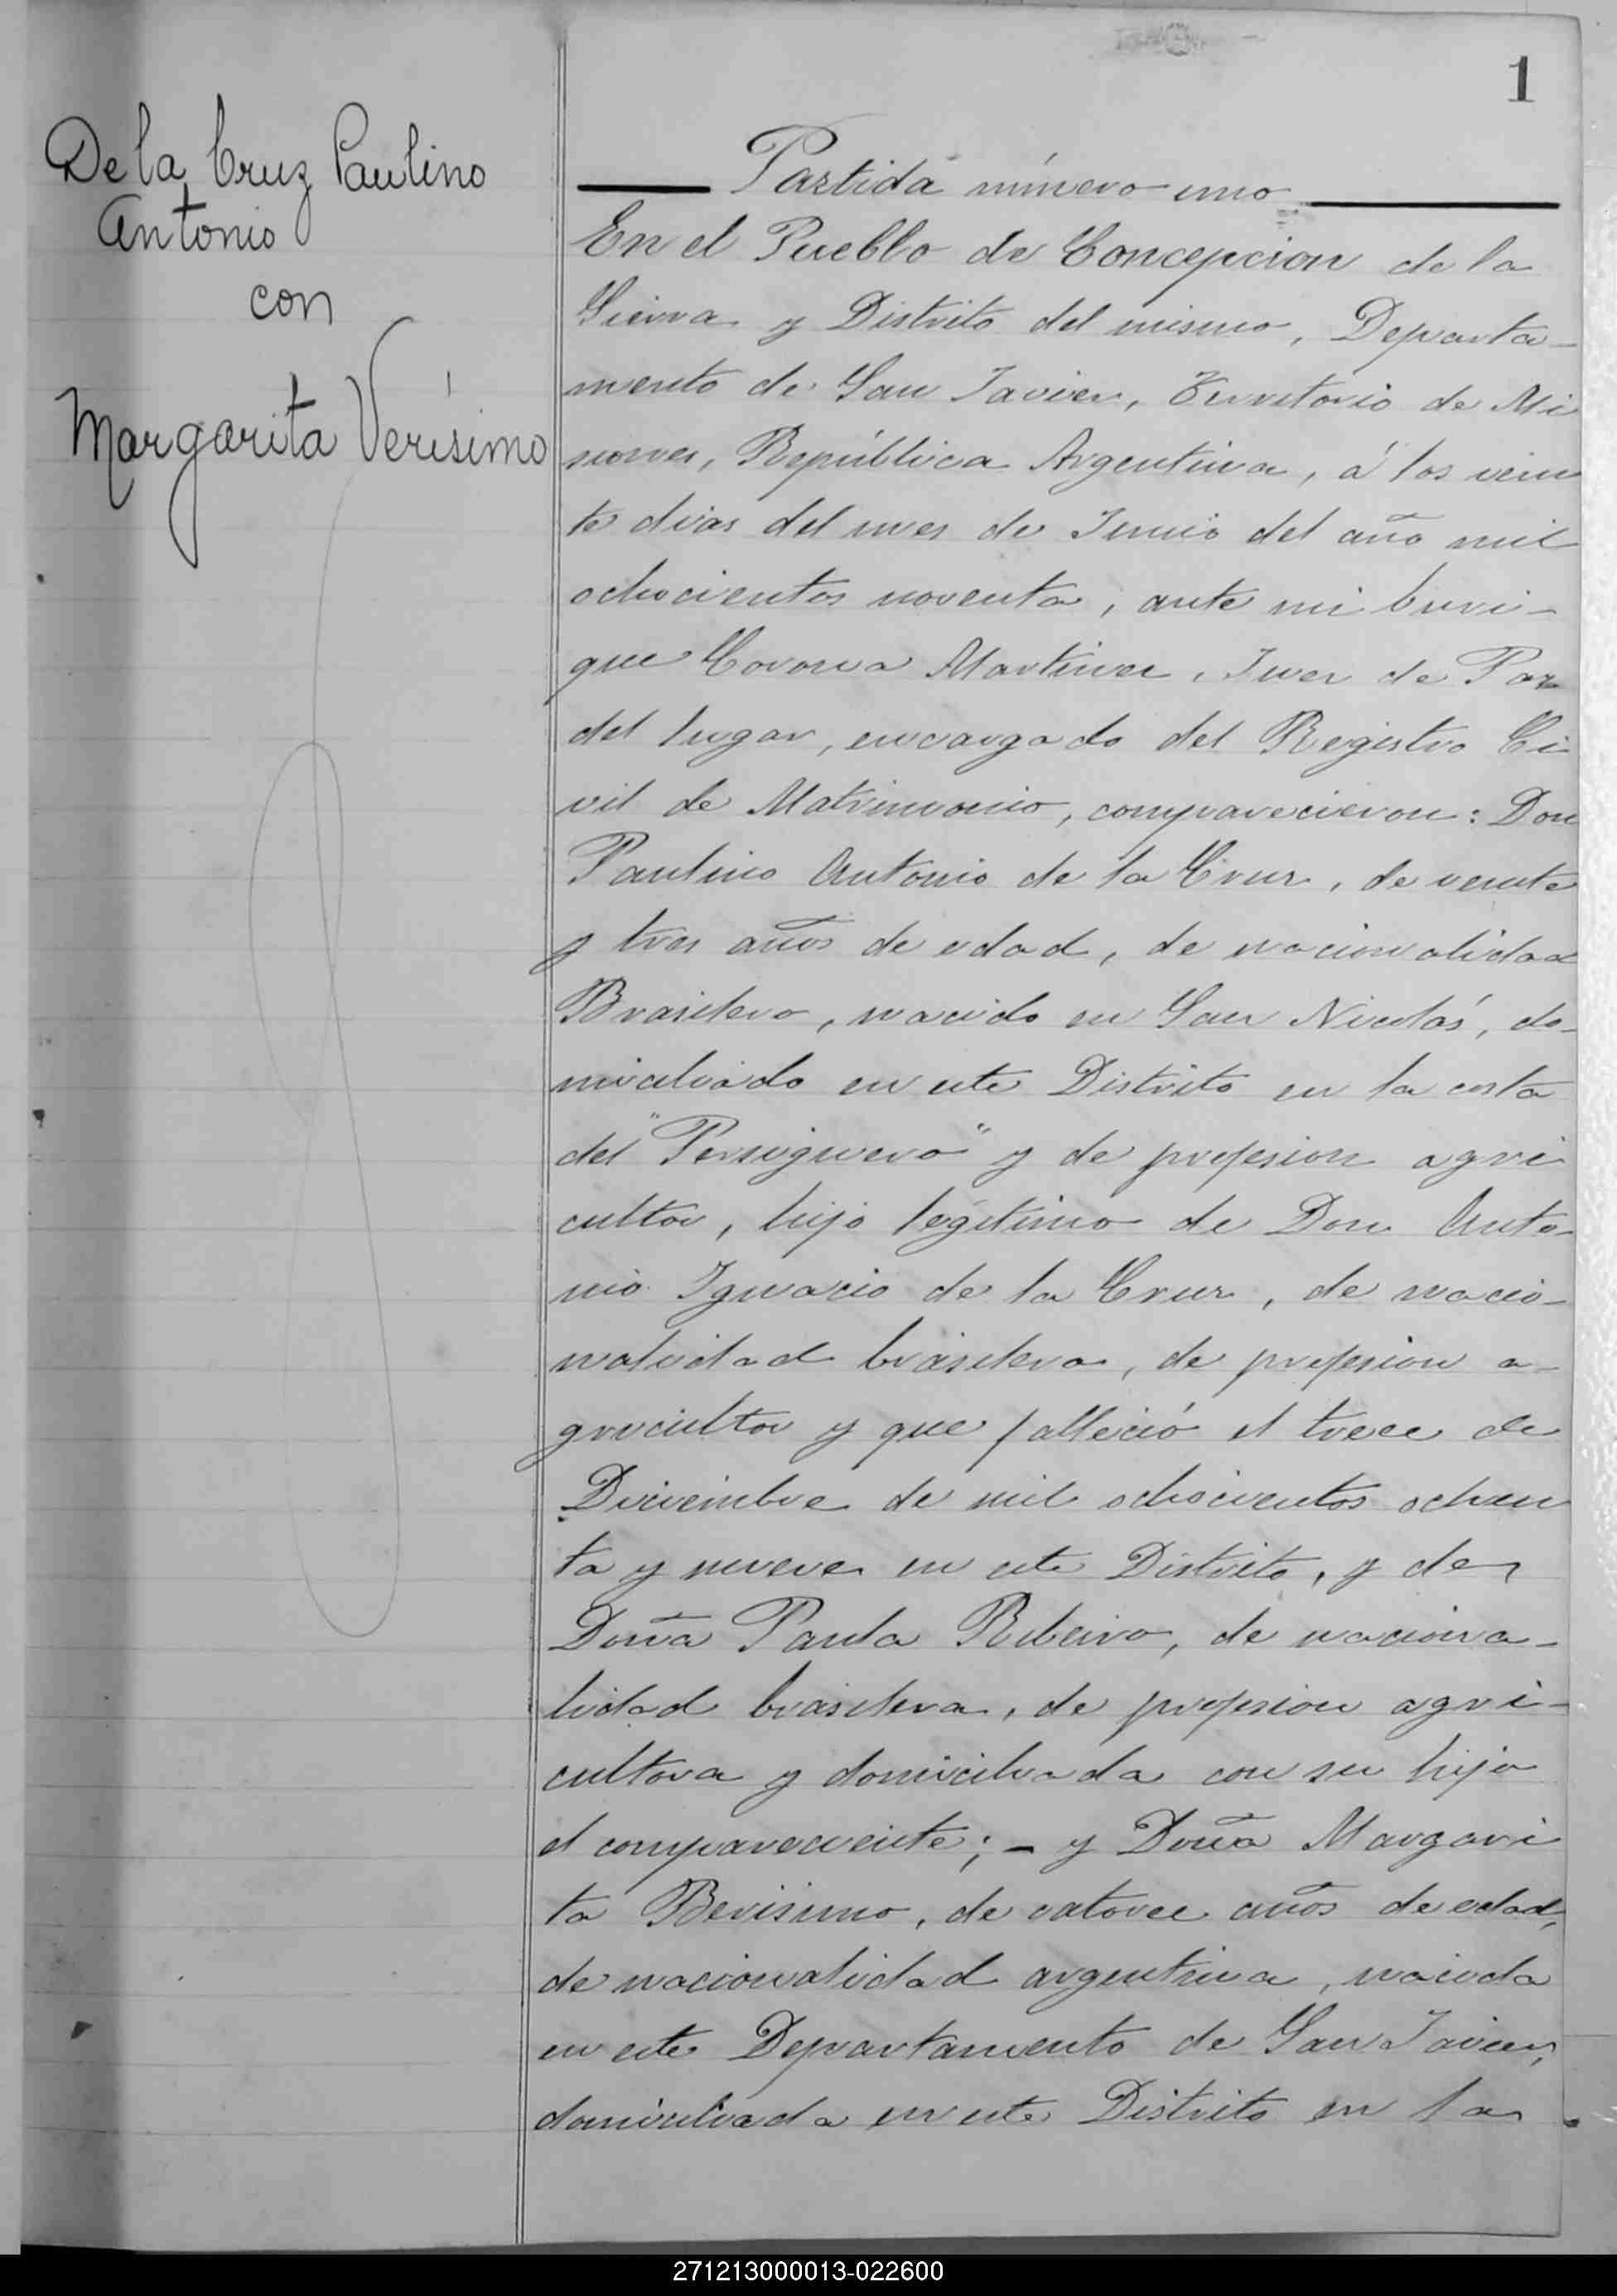 1
De la Cruz Paulino
Antonio
con
Margarita Verísimo
Partida número uno
En el Pueblo de Concepcion de la
Sierra y Distrito del mismo, Departa-
mento de San Javier, Territorio de Mi
siones, República Argentina, á los vein
te dias del mes de Junio del año mil
ochocientos noventa, ante mi Enri-
que Corona Martinez, Juez de Paz
del lugar, encargado del Registro Ci
vil de Matrimonio, comparecieron: Don
Paulino Antonio de la Cruz, de veinte
y tres años de edad, de nacionalidad
Brasilero, nacido en San Nicolás, do-
miciliado en este Distrito en la costa
del "Persiguero" y de profesion agri
cultor, hijo legítimo de Don Anto-
nio Ignacio de la Cruz, de nacio-
nalidad brasilera, de profesion a-
gricultor y que falleció el trece de
Diciembre de mil ochocientos ochen
ta y nueve en este Distrito, y de
Doña Paula Ribeiro, de naciona-
lidad brasilera, de profesion agri-
cultora y domiciliada con su hijo
el compareciente; - y Doña Margari
ta Berisimo, de catorce años de edad,
de nacionalidad argentina, nacida
en este Departamento de San Javier,
domiciliada en este Distrito en la
271213000013-022600